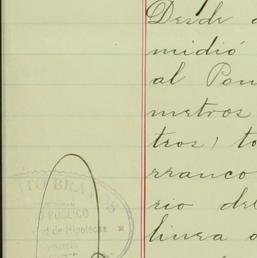 Desde
midió
al Pon
metros
tros) to
rranco
rio del
linea o
TO BRAVOS
O PUBLICO
l de Hipotecas